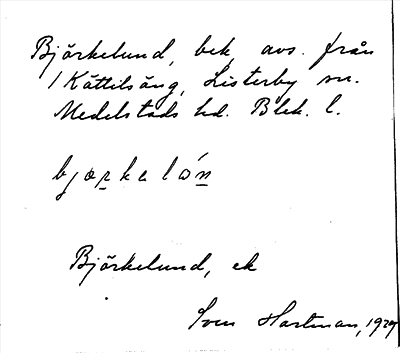 Björkelund, bek. avs. från
1 Kättilsäng, Listerby sn.
Medelstads hd. Blek. l.
bjærkelón
Björkelund, ek
Sven Hartman, 1929